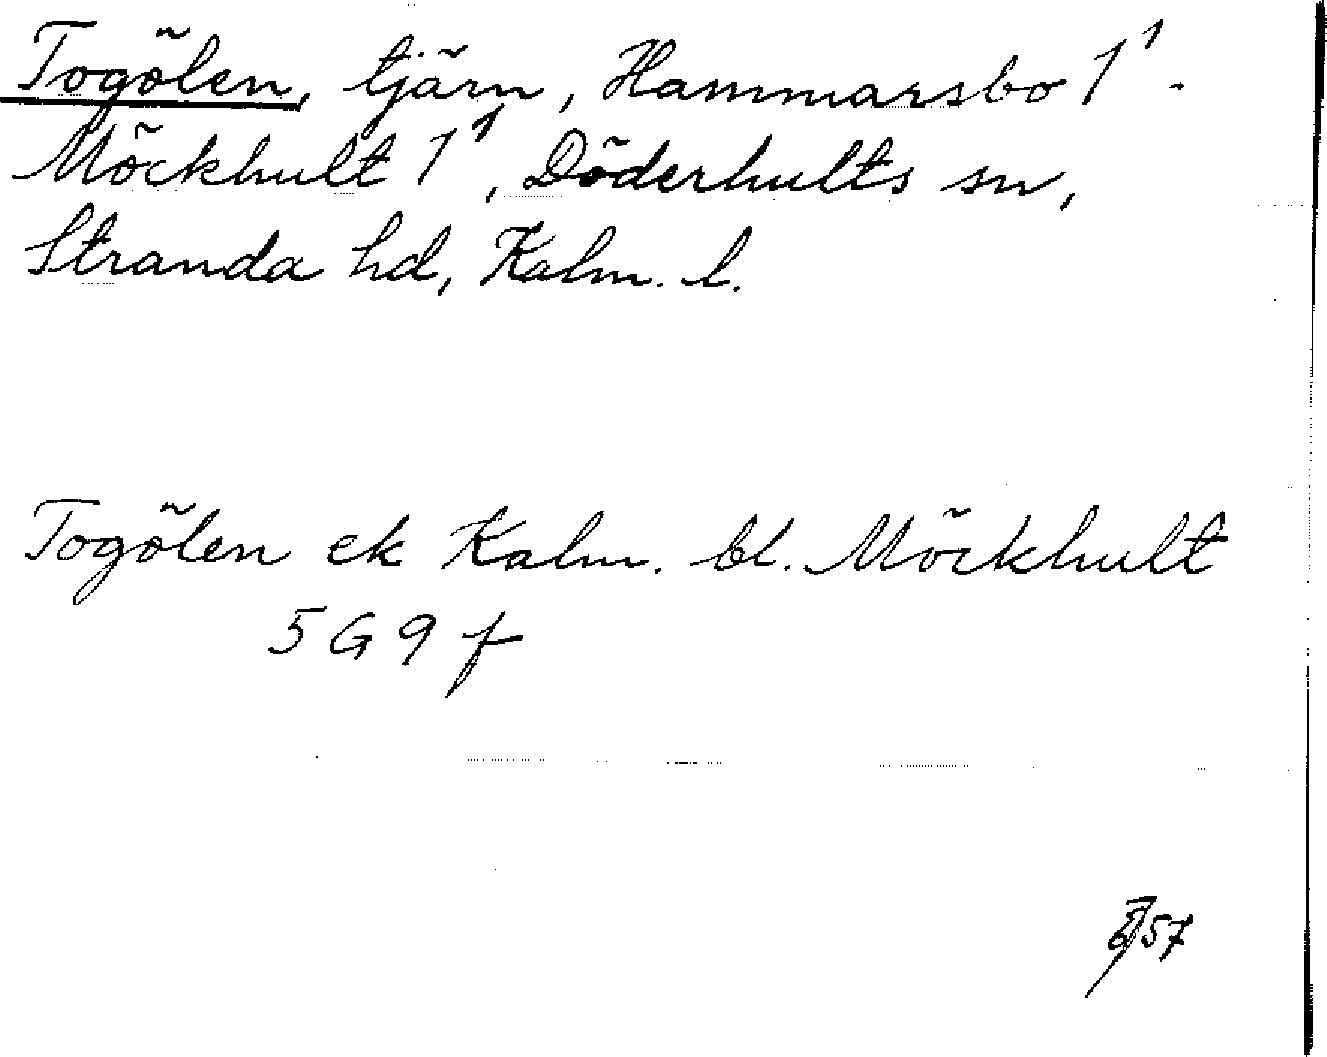 Togölen, tjärn, Hammarsbo 1¹ -
Möckhult 1¹, Döderhults sn,
Stranda hd, Kalm. l.
Togölen ek Kalm. bl. Möckhult
5 G 9 f
57